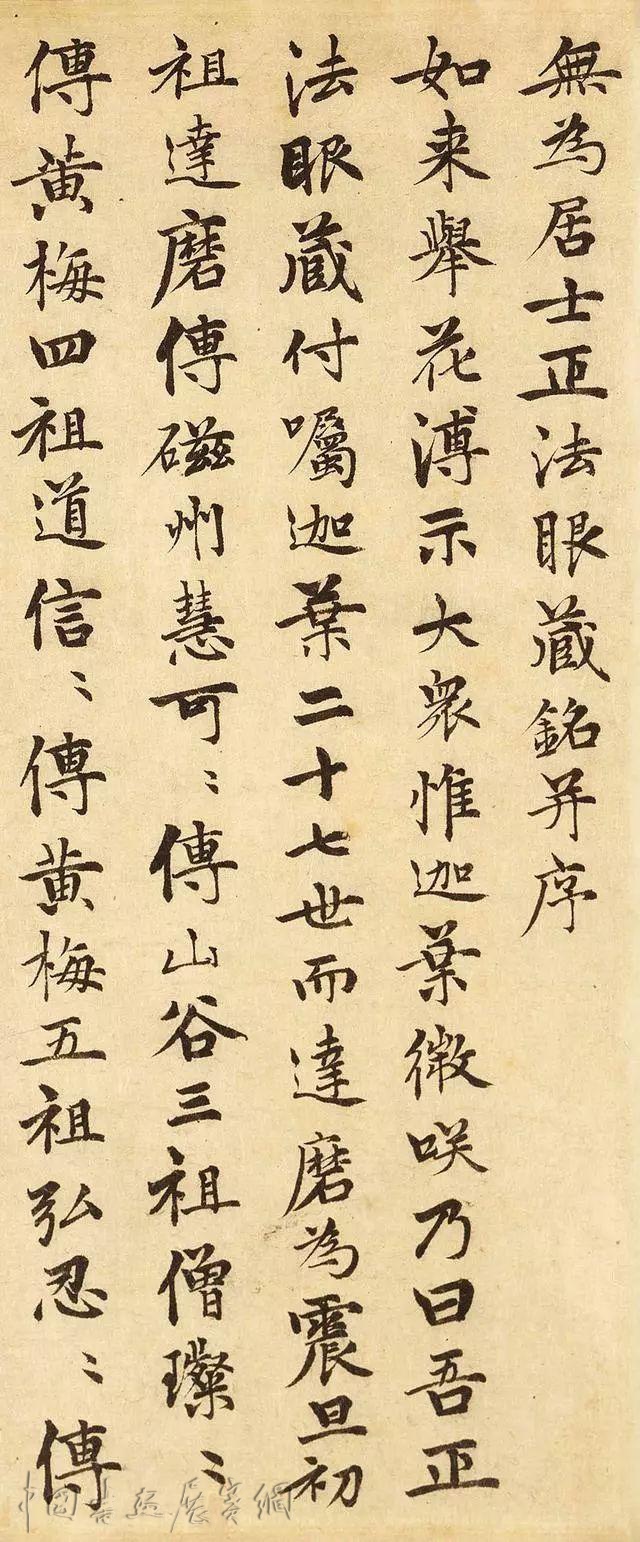 無為居士正法眼藏銘并序
如来舉花溥示大衆惟迦葉微咲乃曰吾正
法眼蔵付囑迦葉二十七世而達磨為震旦初
祖達磨傳磁州慧可〻傳山谷三祖僧璨〻
傳黄梅四祖道信〻傳黄梅五祖弘忍〻傳
中國書法展賽網